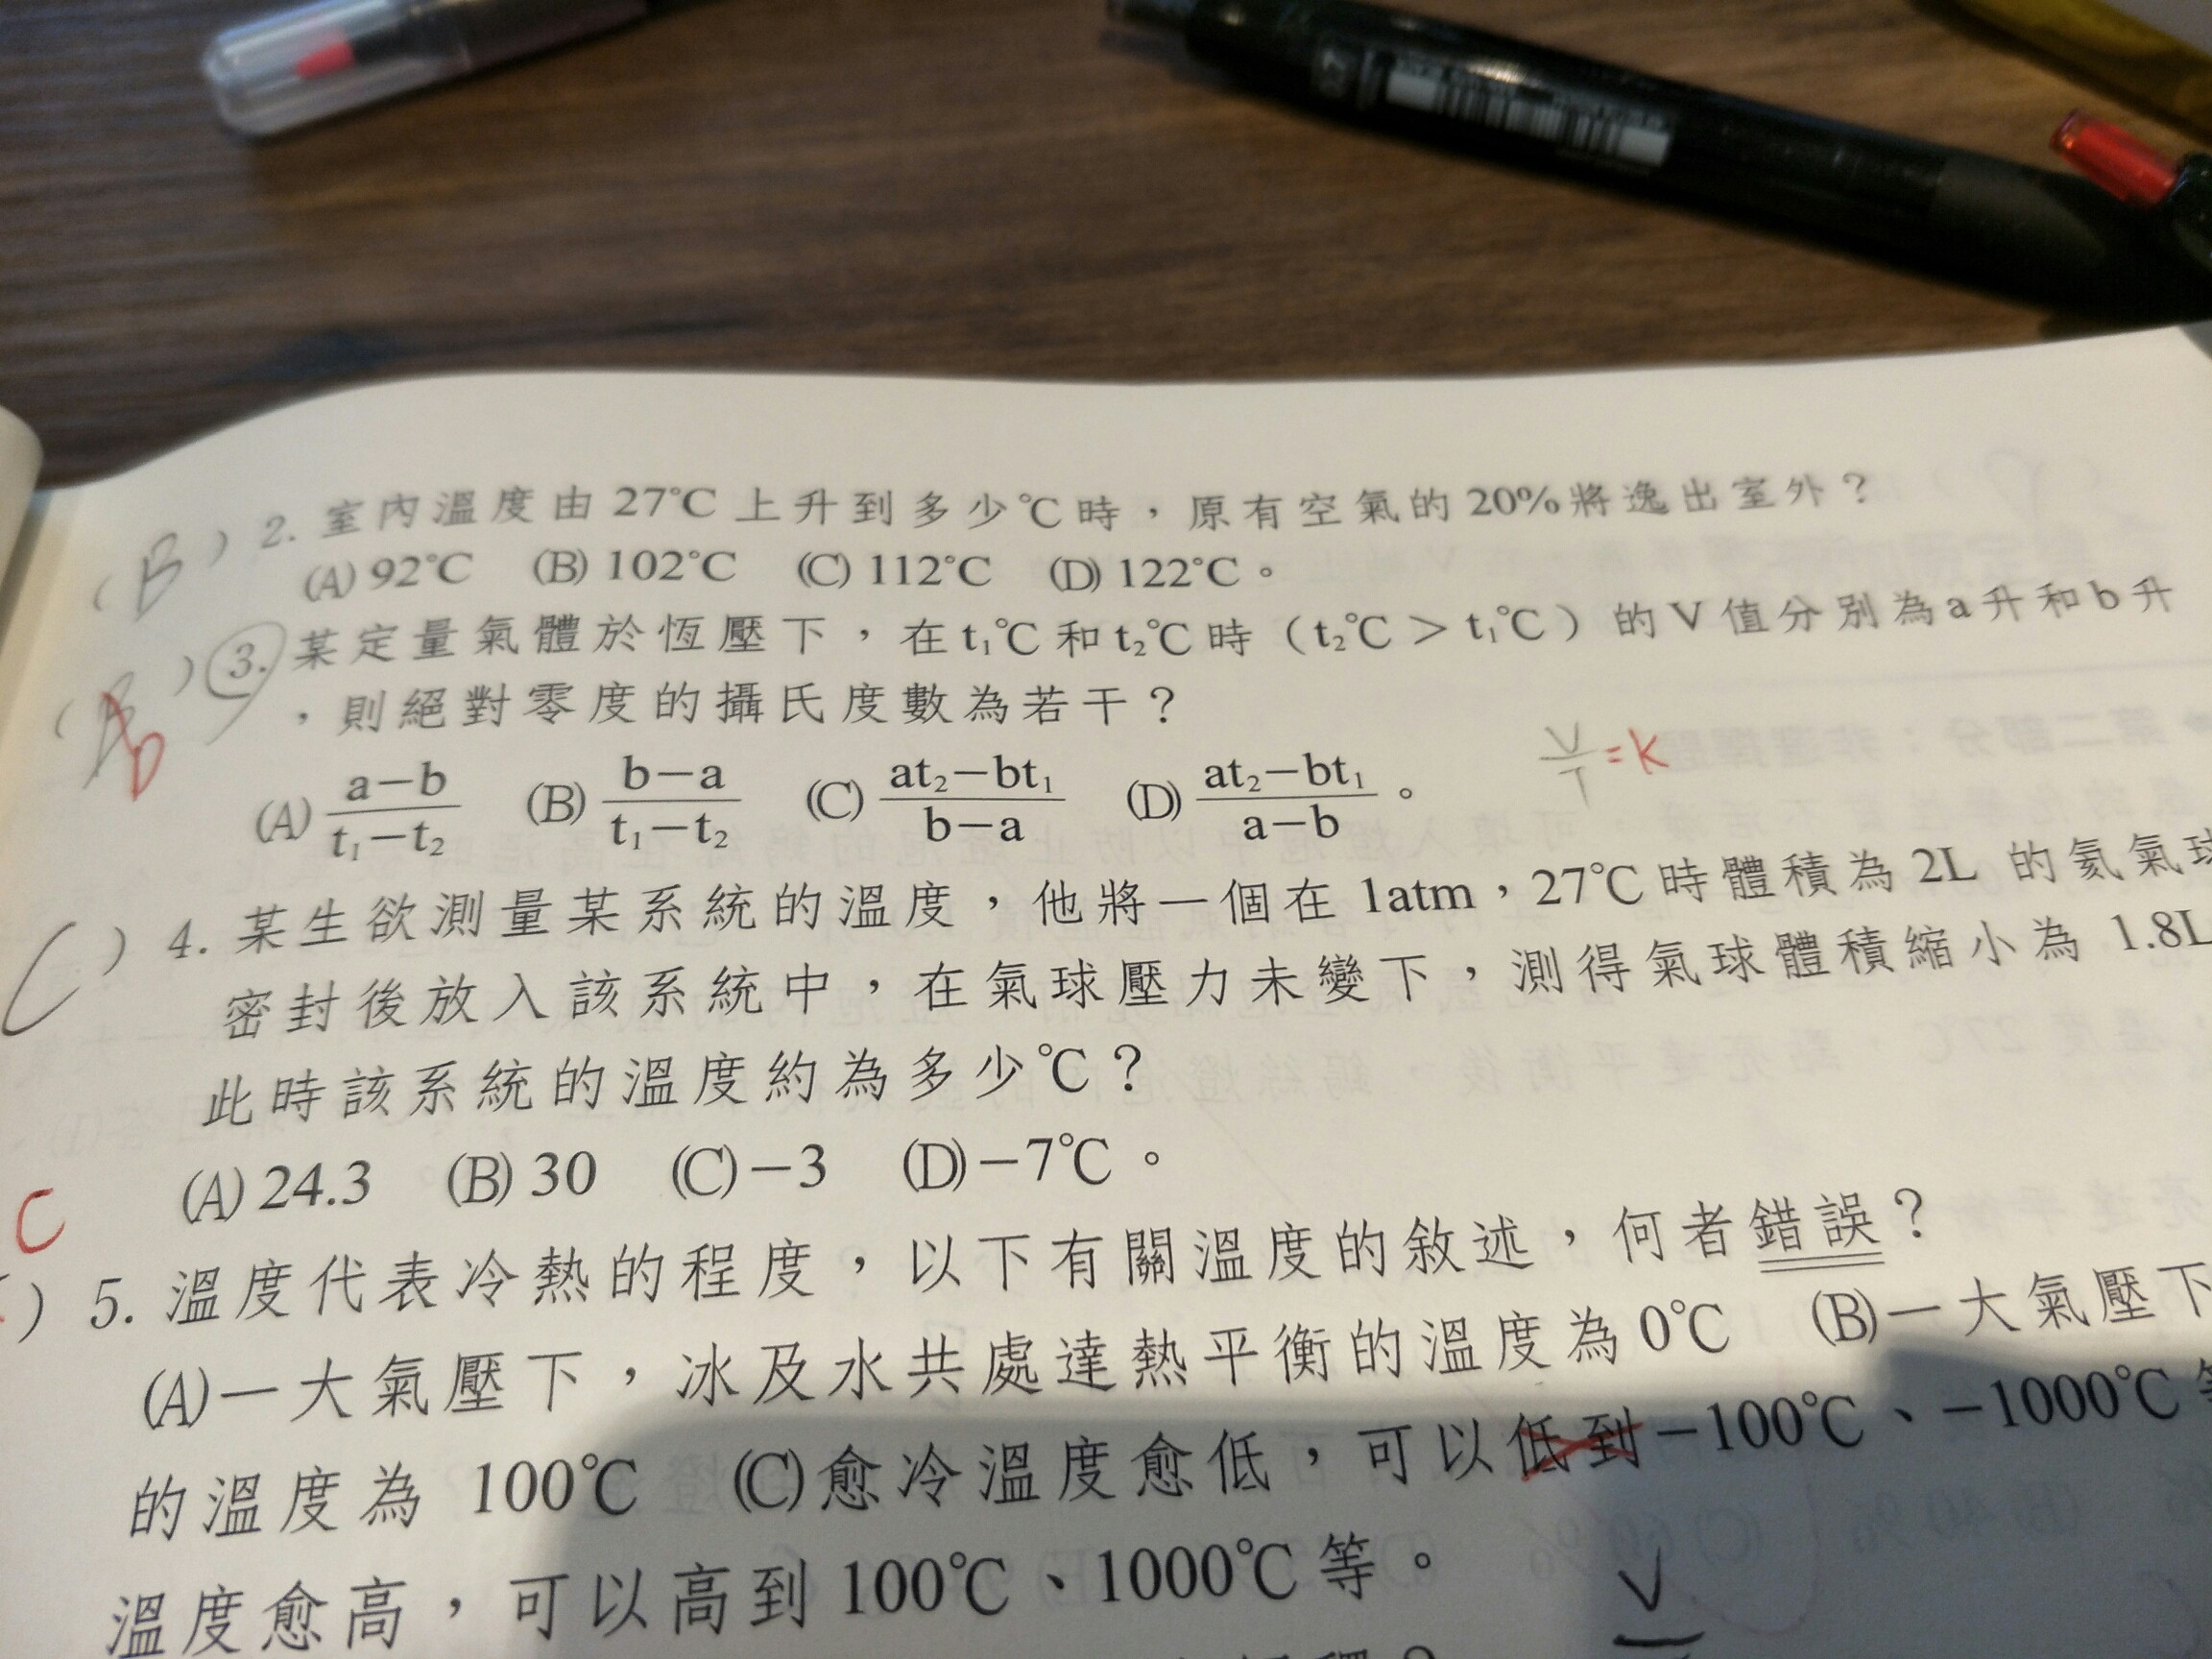 (B) 2. 室內溫度由 27℃ 上升到多少℃時，原有空氣的 20%將逸出室外？
(A) 92℃ (B) 102℃ (C) 112℃ (D) 122℃。
) 3. 某定量氣體於恆壓下，在 t₁℃ 和 t₂℃ 時（t₂℃ > t₁℃）的 V 值分別為 a 升和 b 升
，則絕對零度的攝氏度數為若干？
V/T = K
(A) (a−b)/(t₁−t₂) (B) (b−a)/(t₁−t₂) (C) (at₂−bt₁)/(b−a) (D) (at₂−bt₁)/(a−b)。
C ) 4. 某生欲測量某系統的溫度，他將一個在 1atm，27℃ 時體積為 2L 的氦氣球
密封後放入該系統中，在氣球壓力未變下，測得氣球體積縮小為 1.8L
此時該系統的溫度約為多少℃？
(A) 24.3 (B) 30 (C) −3 (D) −7℃。
C
) 5. 溫度代表冷熱的程度，以下有關溫度的敘述，何者錯誤？
(A)一大氣壓下，冰及水共處達熱平衡的溫度為 0℃ (B)一大氣壓下
的溫度為 100℃ (C)愈冷溫度愈低，可以低到−100℃、−1000℃等
溫度愈高，可以高到 100℃、1000℃ 等。
V